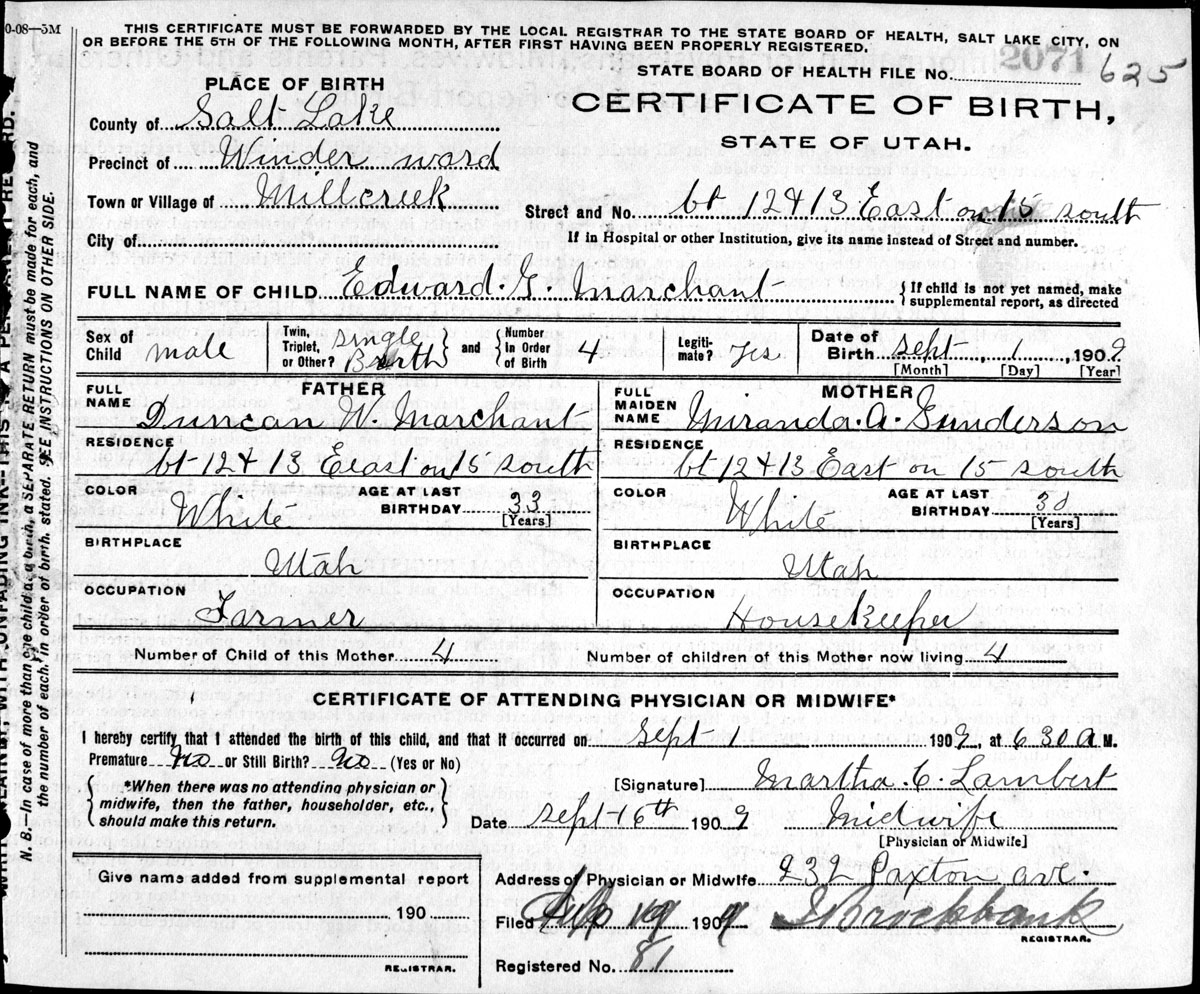 0-08—5M
THIS CERTIFICATE MUST BE FORWARDED BY THE LOCAL REGISTRAR TO THE STATE BOARD OF HEALTH, SALT LAKE CITY, ON
OR BEFORE THE 5TH OF THE FOLLOWING MONTH, AFTER FIRST HAVING BEEN PROPERLY REGISTERED.
STATE BOARD OF HEALTH FILE No. 2071 625
PLACE OF BIRTH
CERTIFICATE OF BIRTH,
STATE OF UTAH.
County of Salt Lake
Precinct of Winder ward
Town or Village of Millcreek
Street and No. bt 12 & 13 East on 15 south
City of
If in Hospital or other Institution, give its name instead of Street and number.
FULL NAME OF CHILD Edward. G. Marchant
{ If child is not yet named, make
supplemental report, as directed
Sex of Child male
Twin, Triplet, or Other? single Birth } and { Number In Order of Birth 4
Legitimate? Yes
Date of Birth sept, 1, 1909
[Month] [Day] [Year]
FATHER
FULL NAME Duncan W. Marchant
RESIDENCE
bt 12 & 13 Eeast on 15 south
COLOR White
AGE AT LAST BIRTHDAY 33
[Years]
BIRTHPLACE
Utah
OCCUPATION
Farmer
MOTHER
FULL MAIDEN NAME Miranda. A. Gunderson
RESIDENCE
bt 12 & 13 East on 15 south
COLOR White
AGE AT LAST BIRTHDAY
[Years]
BIRTHPLACE
Utah
OCCUPATION
Housekeeper
Number of Child of this Mother 4
Number of children of this Mother now living 4
CERTIFICATE OF ATTENDING PHYSICIAN OR MIDWIFE*
I hereby certify that I attended the birth of this child, and that it occurred on sept 1 1909, at 6 30 A M.
Premature No or Still Birth? No (Yes or No)
{ *When there was no attending physician or
midwife, then the father, householder, etc.,
should make this return. }
[Signature] Martha. C. Lambert
Date sept 16th 1909
Midwife
[Physician or Midwife]
Give name added from supplemental report
190
REGISTRAR.
Address of Physician or Midwife 232 Paxton ave.
Filed 19 1909
REGISTRAR.
Registered No. 81
N. B.—In case of more than one child at a birth, a SEPARATE RETURN must be made for each, and
the number of each, in order of birth, stated. SEE INSTRUCTIONS ON OTHER SIDE.